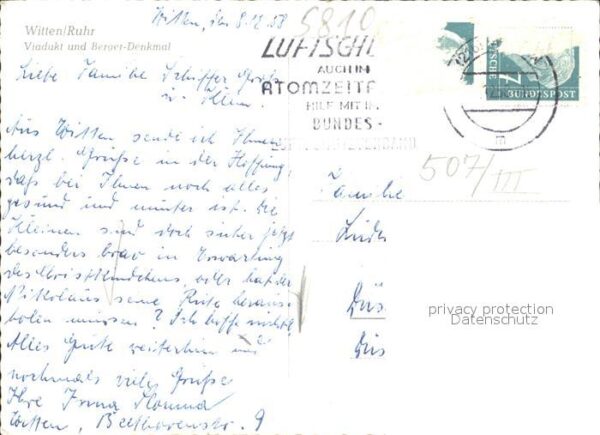 Witten, den 8.12.58
5810
Witten/Ruhr
Viadukt und Berger-Denkmal
LUFTSCH
AUCH IM
ATOMZEITA
HILF MIT IM
BUNDES-
LUFTSCHUTZVERBAND
7
DEUTSCHE BUNDESPOST
Liebe Familie Schiffer Groß
u. Klein.
Aus Witten sende ich Ihnen
herzl. Grüße in der Hoffnung,
daß bei Ihnen noch alles
gesund und munter ist. Die
Kleinen sind doch sicher jetzt
besonders brav in Erwartung
des Christkindchens, oder hat der
Nikolaus seine Rute heraus-
holen müssen? Ich hoffe nicht!
Alles Gute weiterhin und
nochmals viele Grüße
Ihre Irma
Witten, Beethovenstr. 9
507/III
Familie
Düs
Düs
privacy protection
Datenschutz